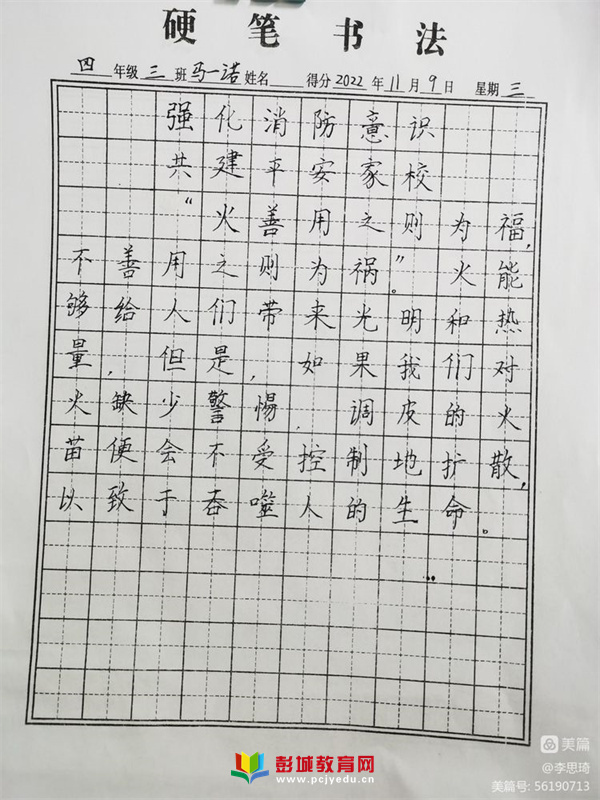 硬笔书法
四年级三班马一诺姓名 得分2022年11月9日 星期三
强化消防意识
共建平安家校
“火善用之则为福,
不善用之则为祸”。火能
够给人们带来光明和热
量,但是,如果我们对
火缺少警惕,调皮的火
苗便会不受控制地扩散,
以致于吞噬人的生命。
彭城教育网
www.pcjyedu.cn
美篇
@李思琦
美篇号: 56190713